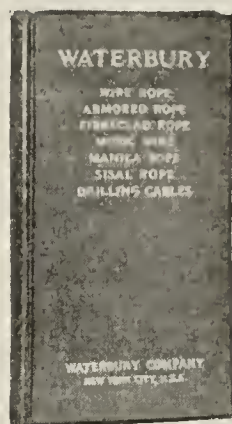 WATERBURY
WIRE ROPE
ARMORED ROPE
FIBRECLAD ROPE
MUSIC WIRE
MANILA ROPE
SISAL ROPE
DRILLING CABLES
WATERBURY COMPANY
NEW YORK CITY, U.S.A.